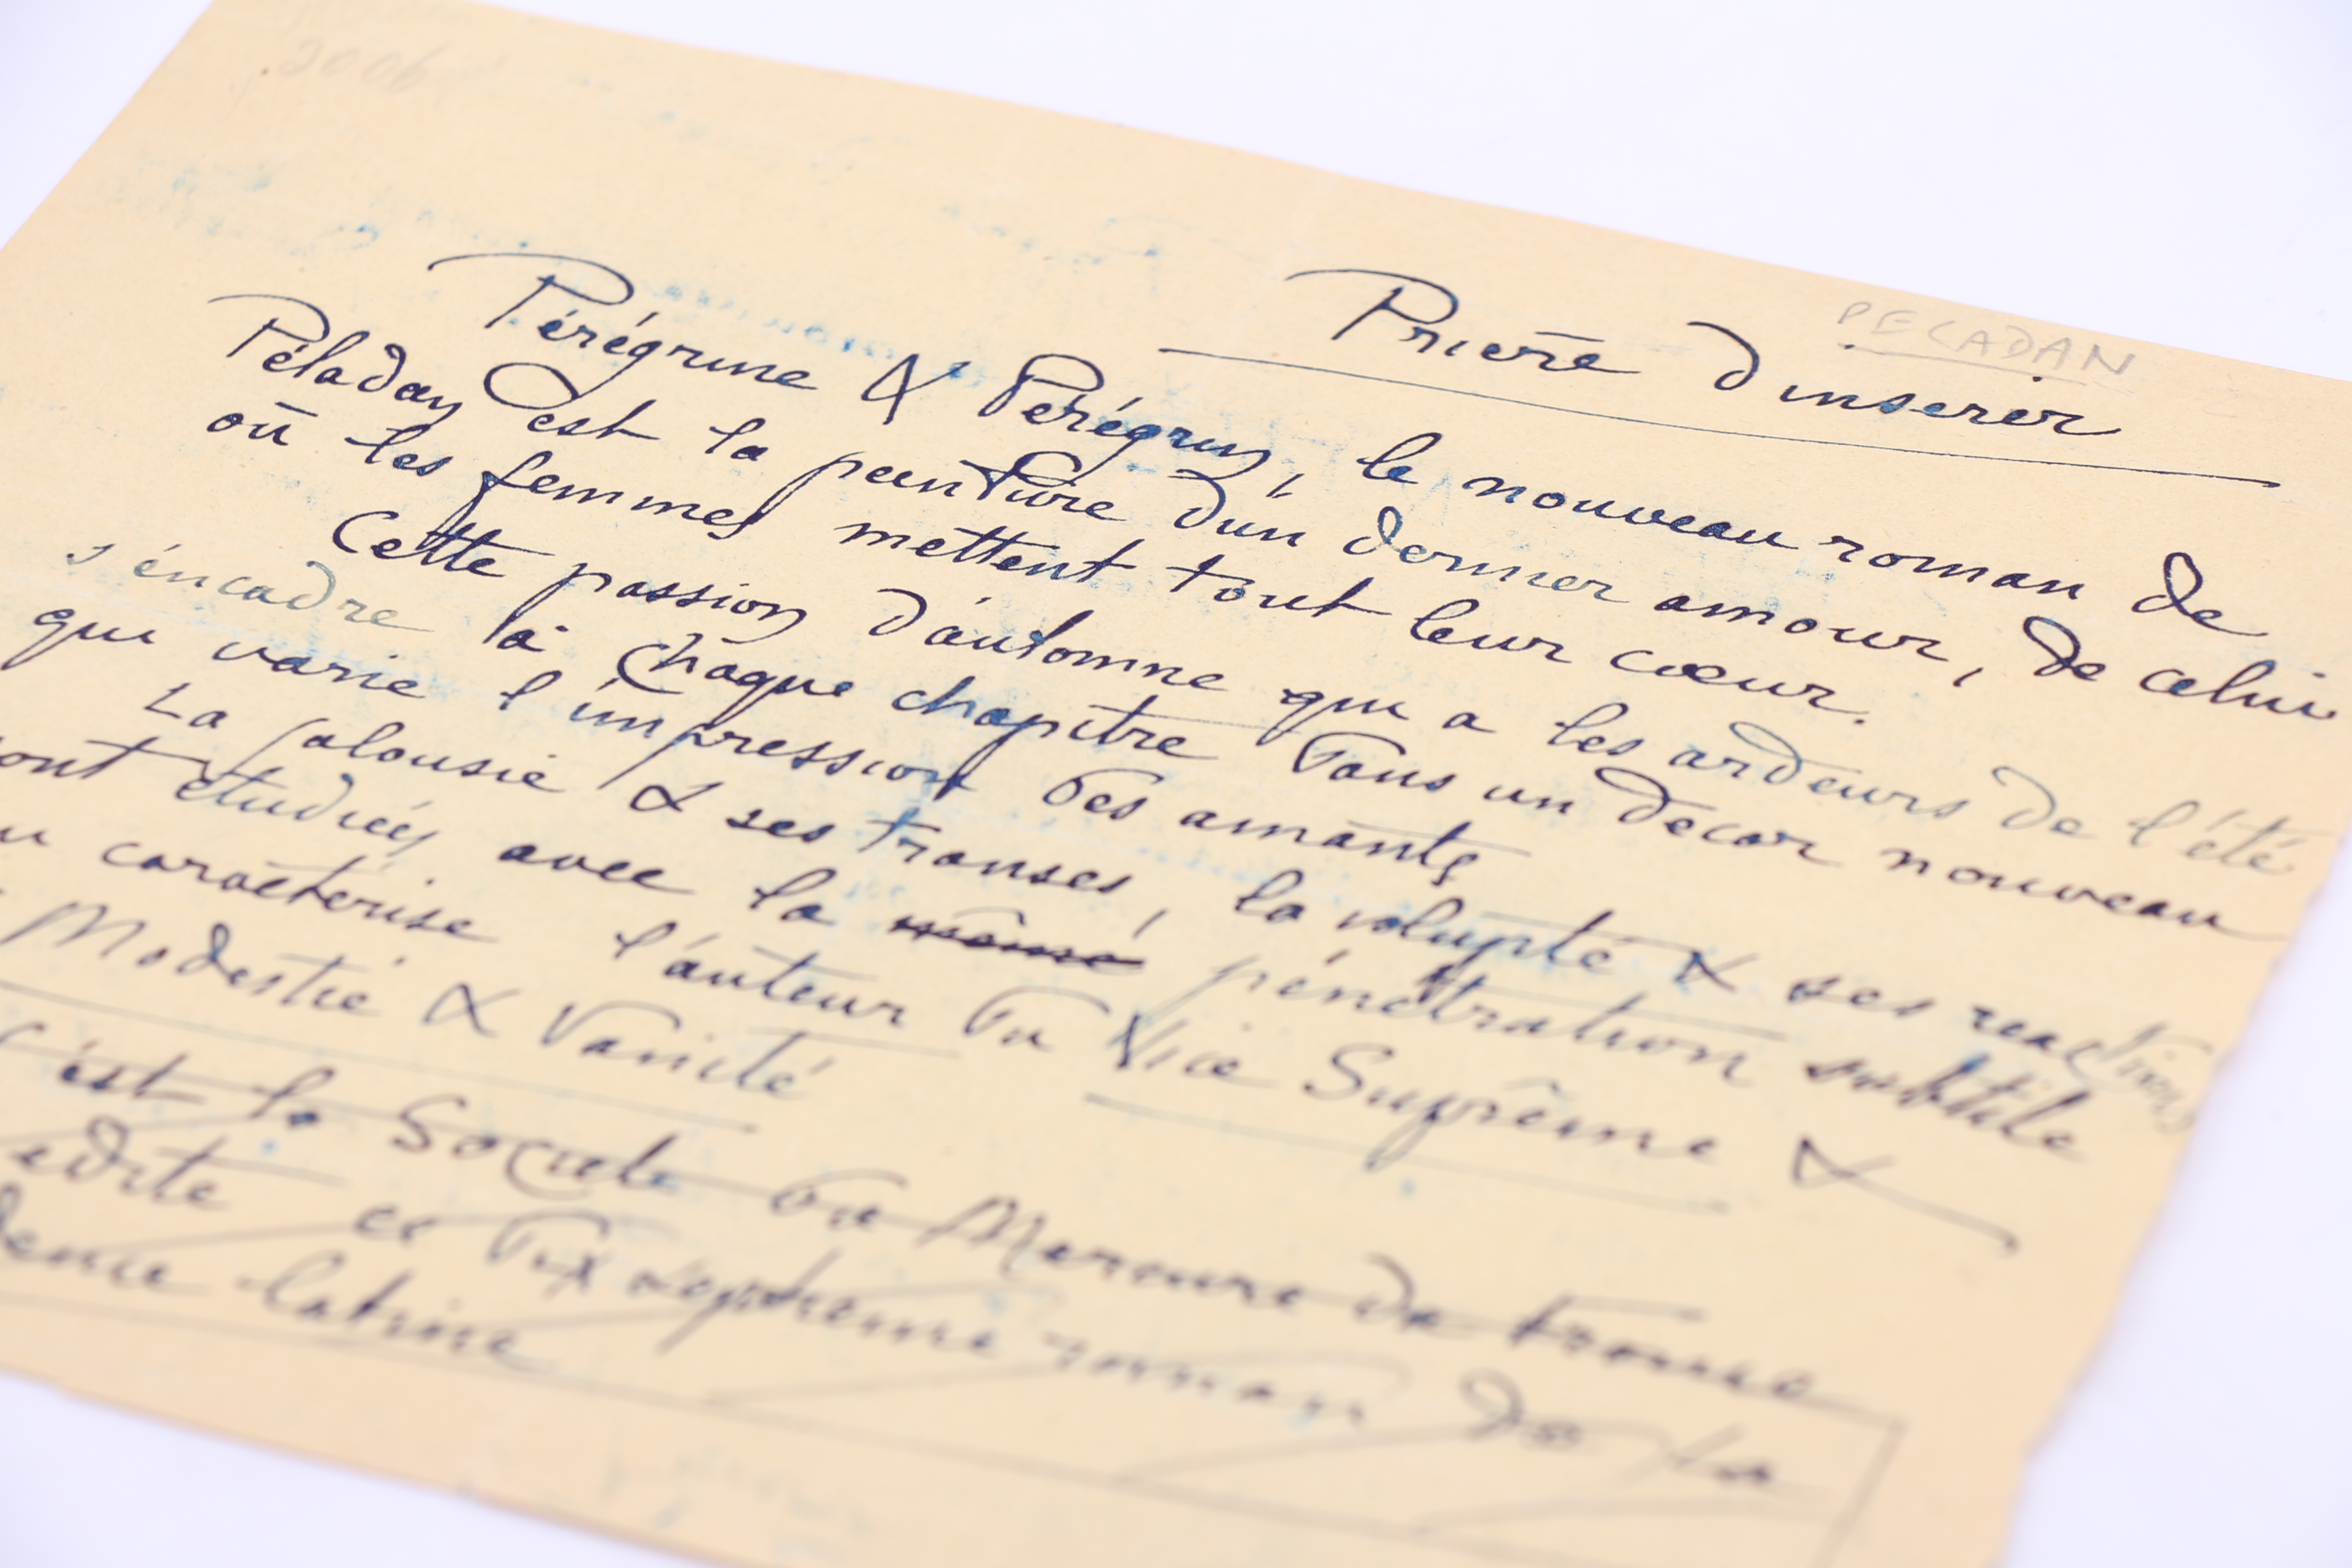 3006
PELADAN
Prière d'insérer
Pérégrine & Pérégrin, le nouveau roman de
Péladan est la peinture d'un dernier amour, de celui
où les femmes mettent tout leur cœur.
Cette passion d'automne qui a les ardeurs de l'été
s'encadre à chaque chapitre dans un décor nouveau
qui varie l'impression des amants
La jalousie & ses transes, la volupté & ses reactions
sont étudiées avec la même pénétration subtile
qui caractérise l'auteur du Vice Suprême &
Modestie & Vanité
C'est la Société du Mercure de France
édite ce dix septième roman de la
latine